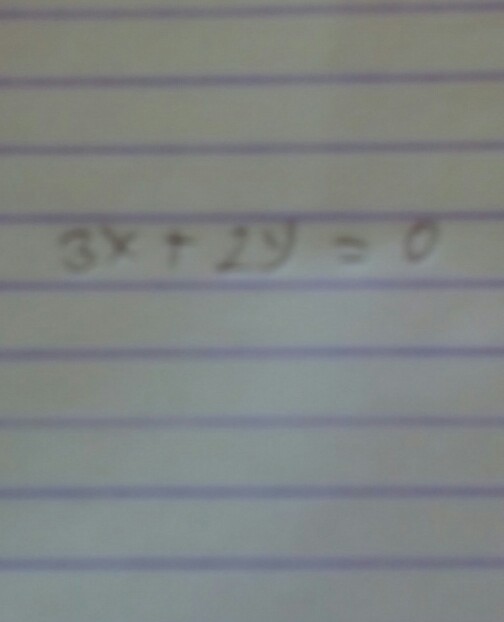 3x + 2y = 0